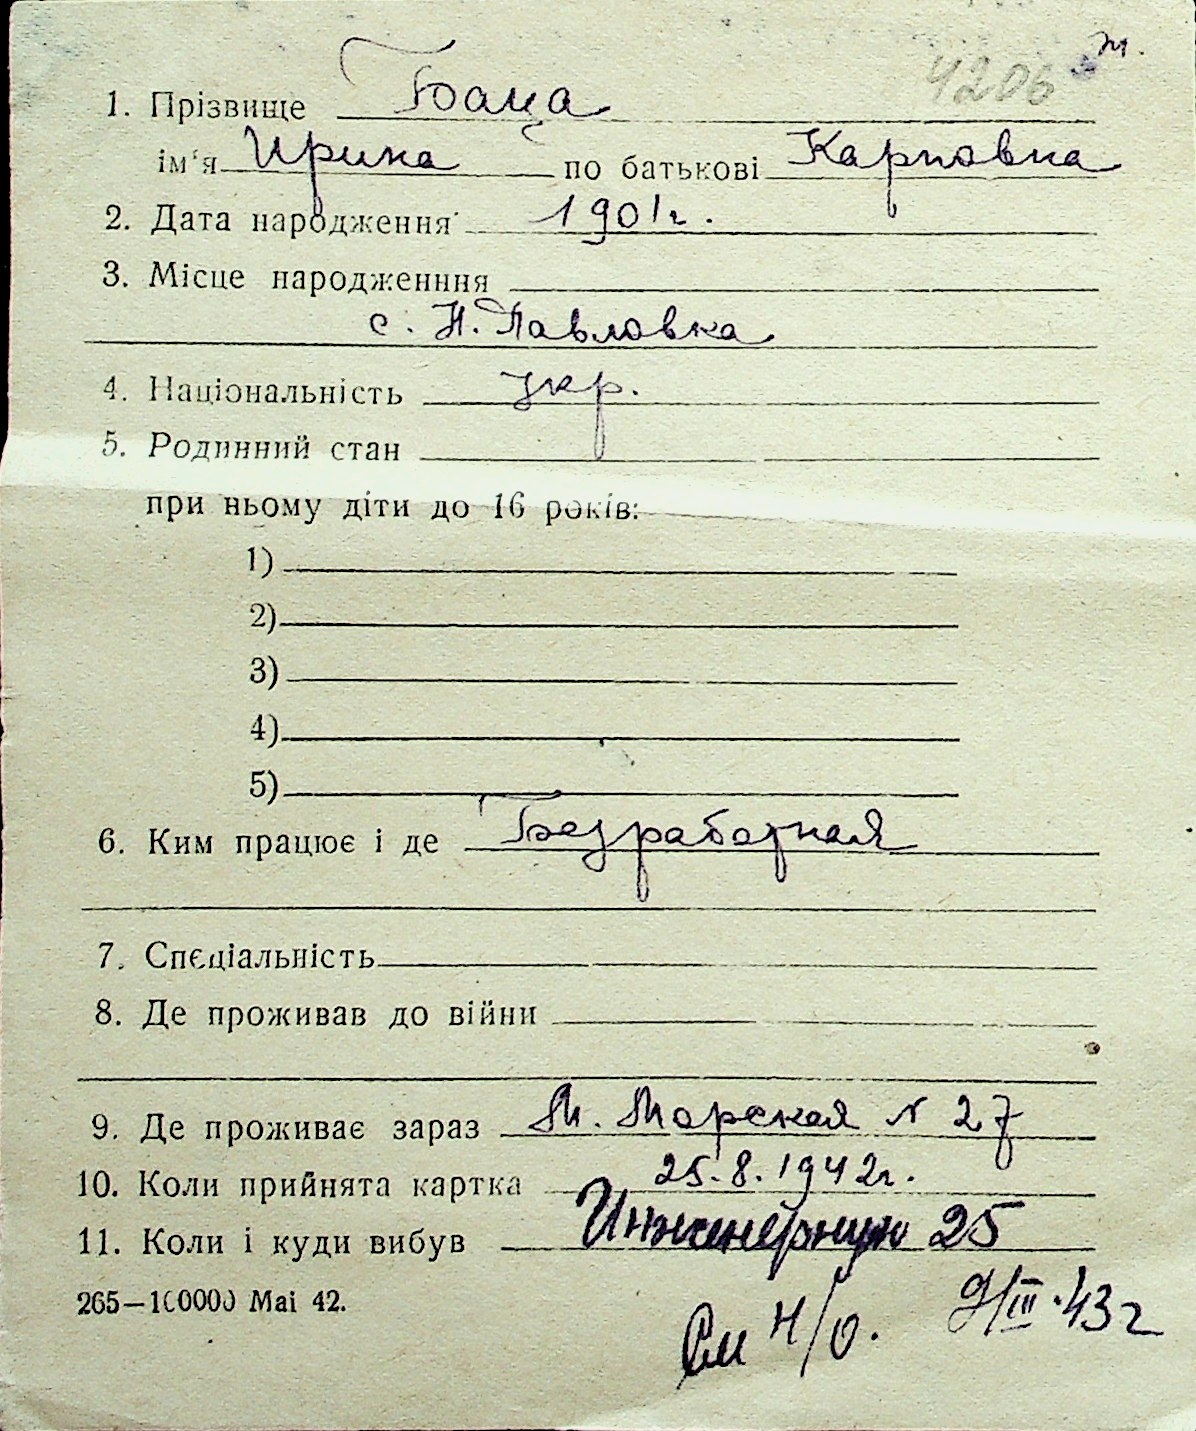 4206 м.
1. Прізвище Баца
ім'я Ирина по батькові Карповна
2. Дата народження 1901 г.
3. Місце народженння
с. Н. Павловка
4. Національність укр.
5. Родинний стан
при ньому діти до 16 років:
1)
2)
3)
4)
5)
6. Ким працює і де Безработная
7. Спєціальність
8. Де проживав до війни
9. Де проживає зараз М. Морская N 27
10. Коли прийнята картка 25.8.1942г.
11. Коли і куди вибув Инженерную 25
265—100000 Mai 42.
См н/о. 9/III·43 г